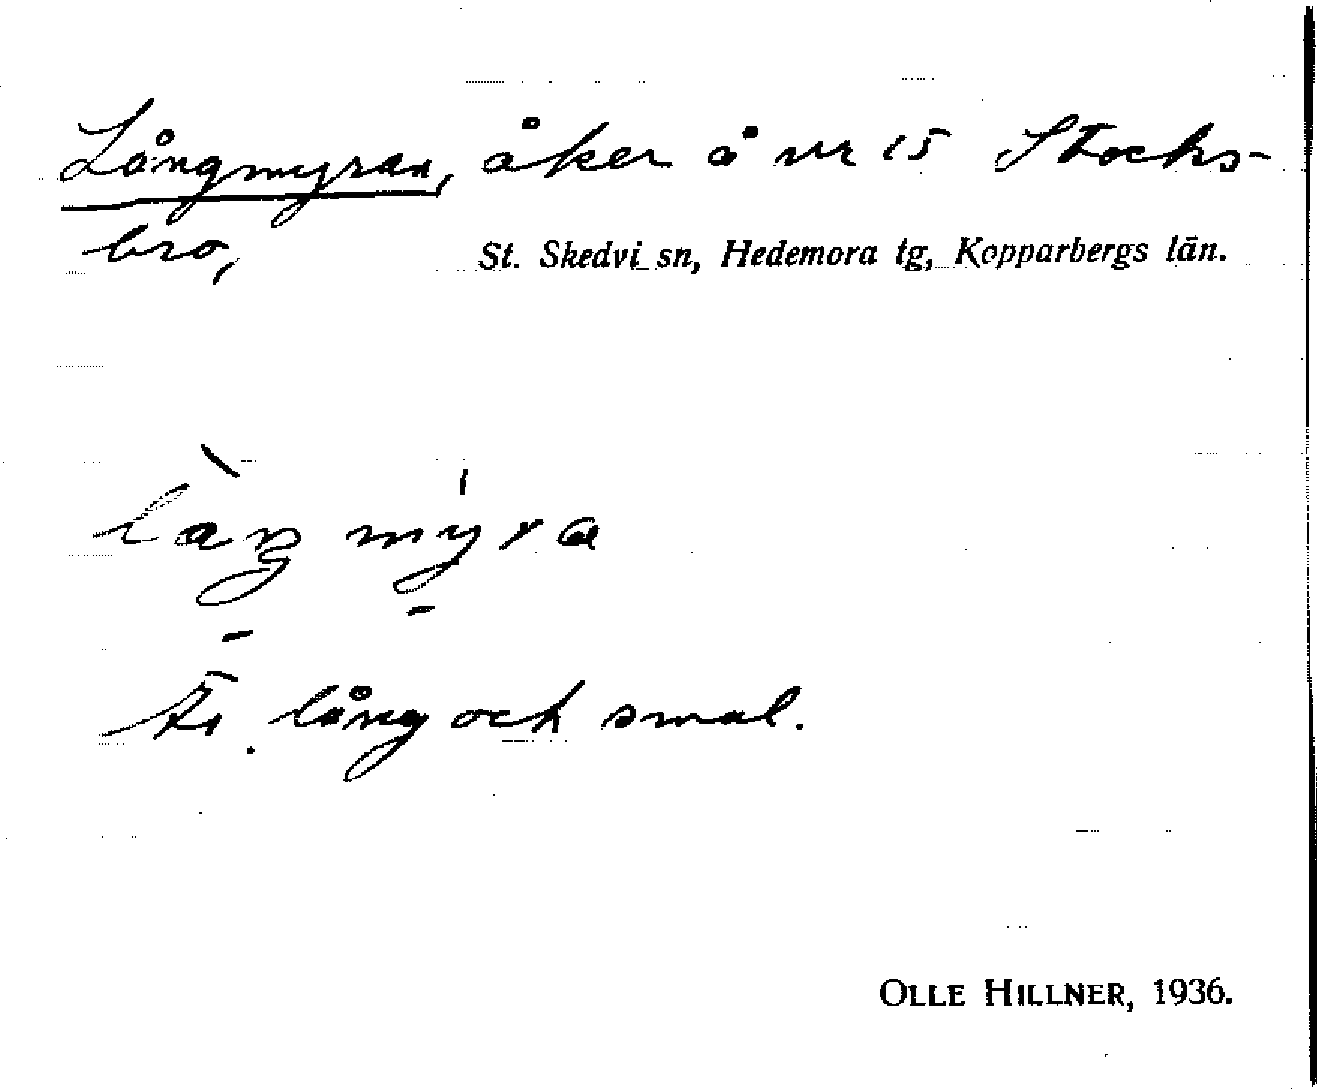 Långmyran, åker å nr 15 Stocks-
bro,
St. Skedvi sn, Hedemora tg, Kopparbergs län.
làŋmy̍ra
Är lång och smal.
OLLE HILLNER, 1936.